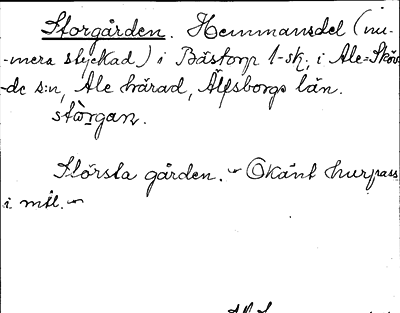 Storgården. Hemmansdel (nu-
-mera styckad) i Bästorp 1-sk, i Ale-Sköv-
-de s:n, Ale härad, Älfsborgs län.
stòrgan.
Största gården. - Okänt hurpass
i mtl. -